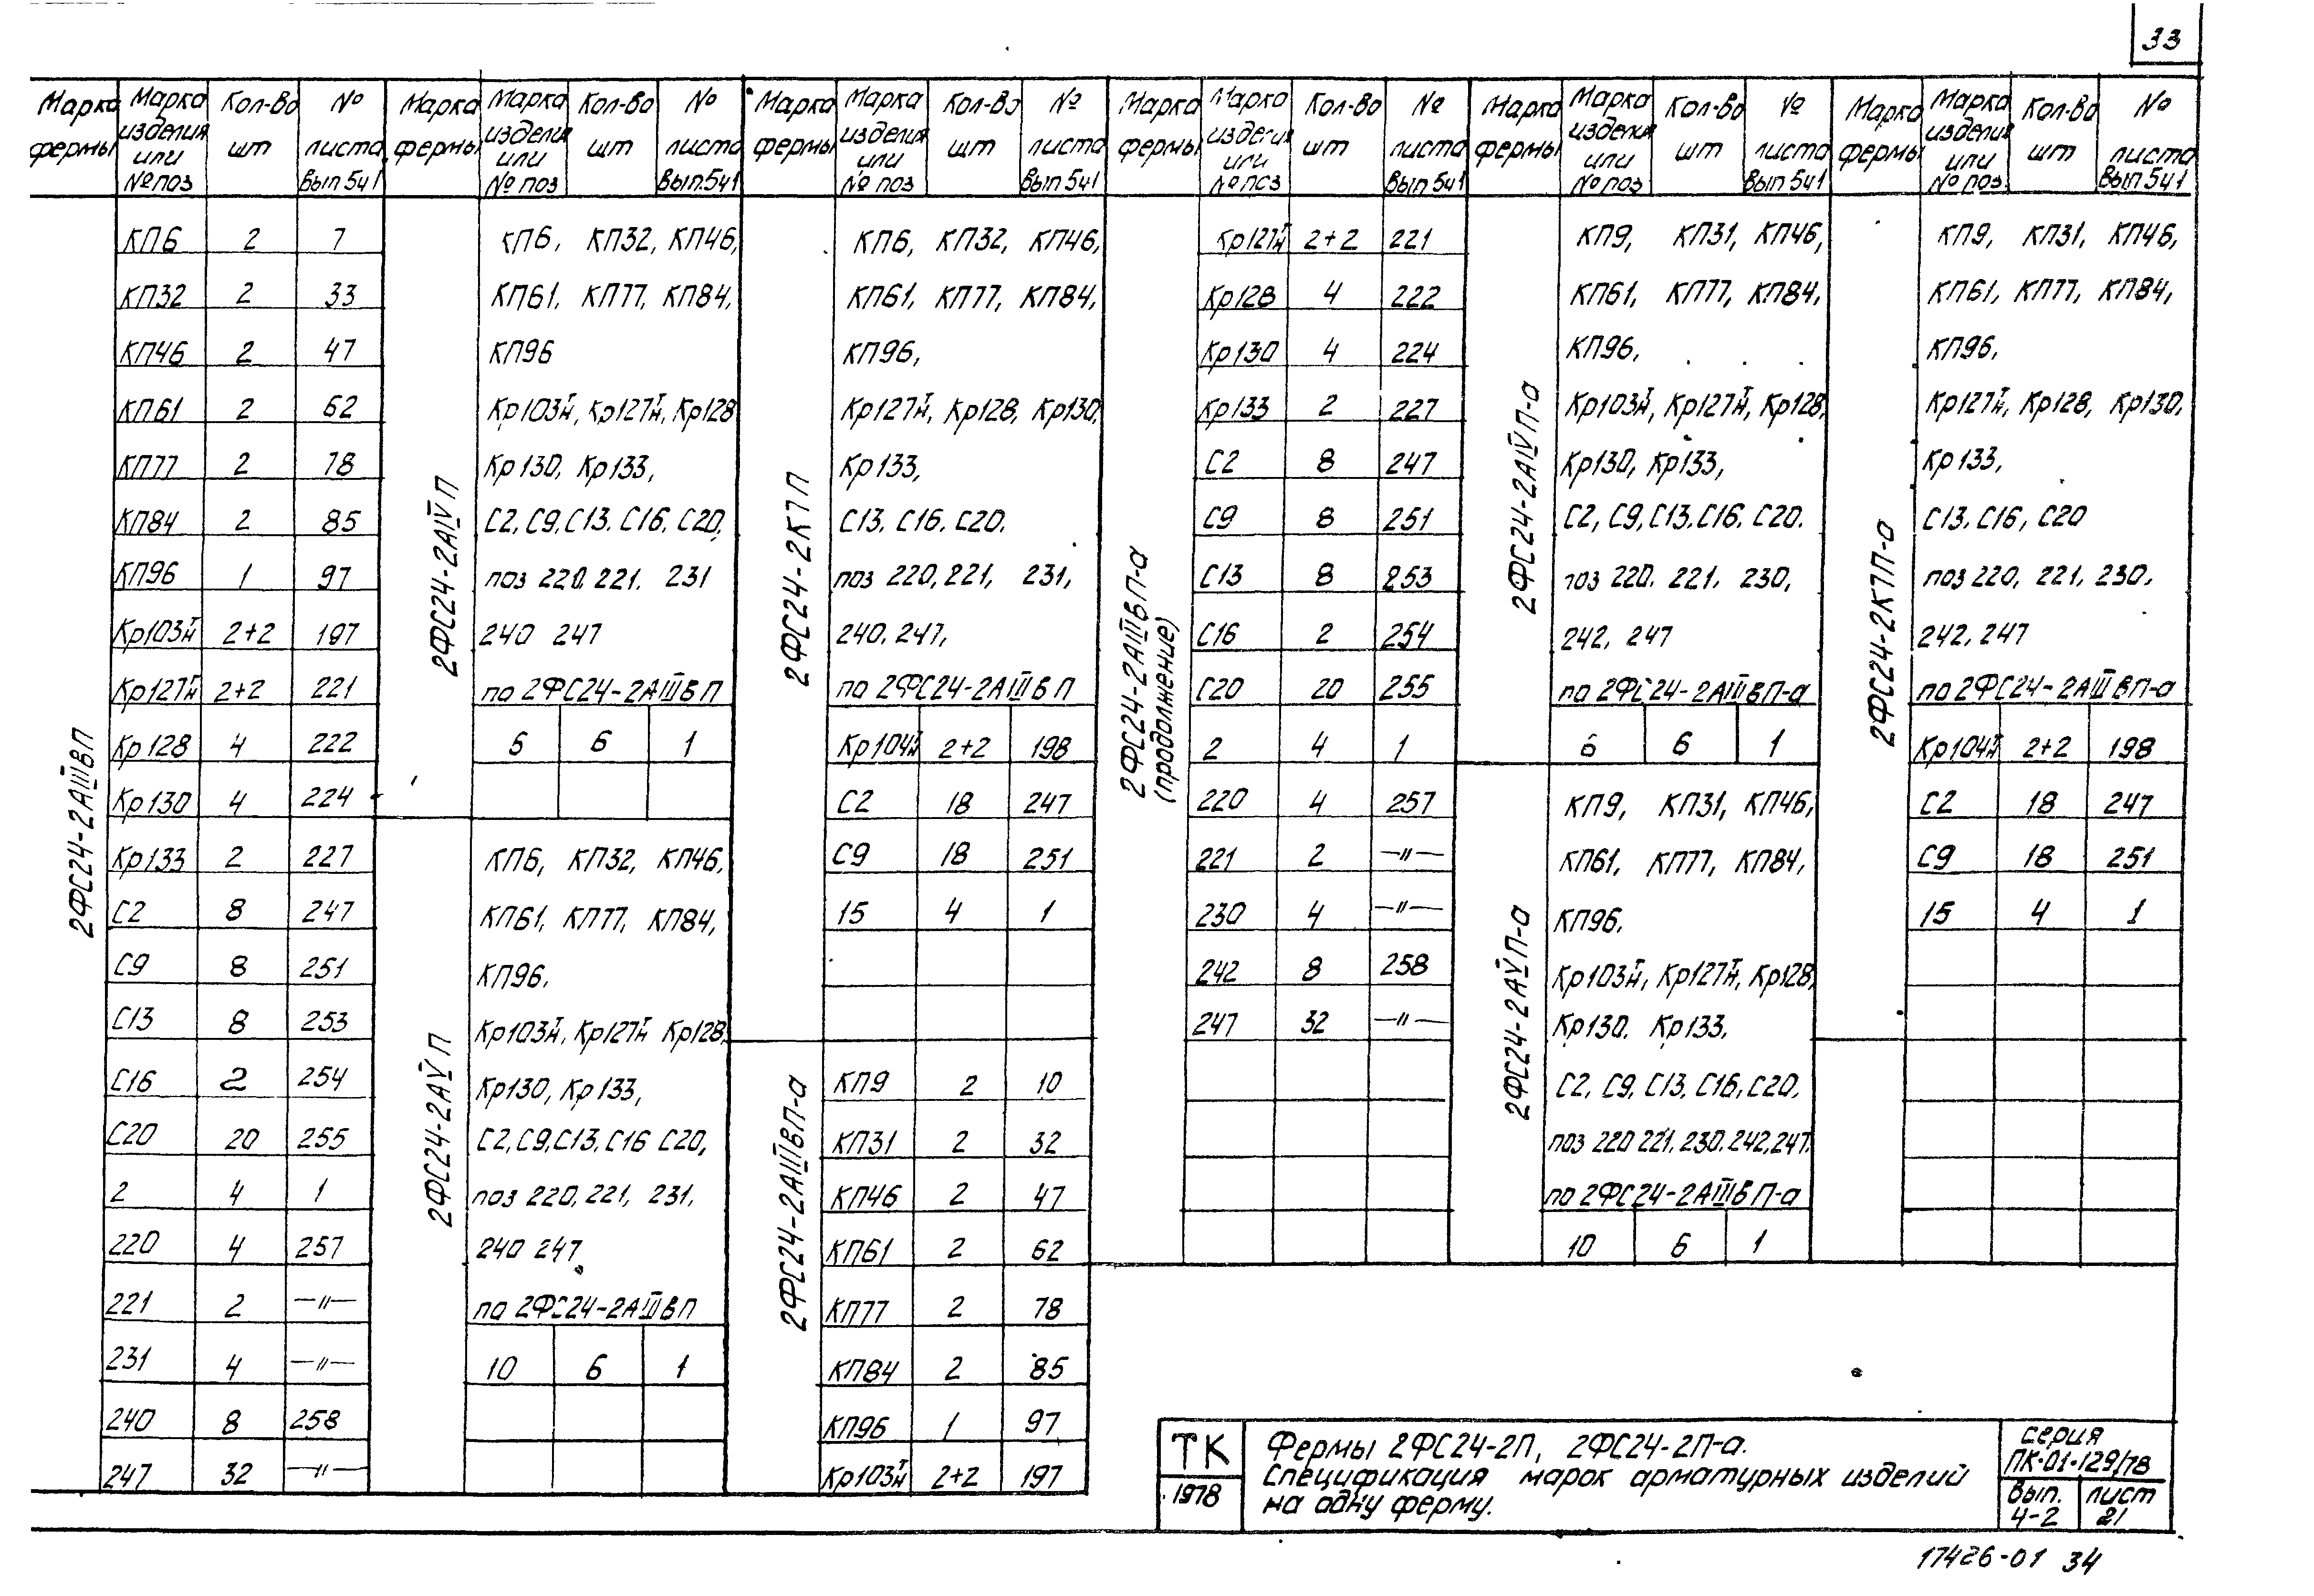 33
Марка фермы | Марка изделия или № поз | Кол-во шт | № листа Вып 541
2ФС24-2АIIIВП
КП6 2 7
КП32 2 33
КП46 2 47
КП61 2 62
КП77 2 78
КП84 2 85
КП96 1 97
Кр103 2+2 197
Кр127 2+2 221
Кр128 4 222
Кр130 4 224
Кр133 2 227
С2 8 247
С9 8 251
С13 8 253
С16 2 254
С20 20 255
2 4 1
220 4 257
221 2 —"—
231 4 —"—
240 8 258
247 32 —"—
Марка фермы | Марка изделия или № поз | Кол-во шт | № листа Вып.541
2ФС24-2АIVП
КП6, КП32, КП46,
КП61, КП77, КП84,
КП96
Кр103, Кр127, Кр128
Кр130, Кр133,
С2, С9, С13. С16, С20,
поз 220, 221. 231
240 247
по 2ФС24-2АIIIВП
6 1
2ФС24-2АVП
КП6, КП32, КП46,
КП61, КП77, КП84,
КП96.
Кр103, Кр127 Кр128,
Кр130, Кр133,
С2, С9, С13, С16 С20,
поз 220, 221, 231,
240 247
по 2ФС24-2АIIIВП
10 6 1
Марка фермы | Марка изделия или № поз | Кол-во шт | № листа Вып 541
2ФС24-2К7П
КП6, КП32, КП46,
КП61, КП77, КП84,
КП96,
Кр127, Кр128, Кр130,
Кр133,
С13. С16. С20.
поз 220, 221, 231,
240, 247,
по 2ФС24-2АIIIВП
Кр104 2+2 198
С2 18 247
С9 18 251
15 4 1
2ФС24-2АIIIВП-а
КП9 2 10
КП31 2 32
КП46 2 47
КП61 2 62
КП77 2 78
КП84 2 85
КП96 1 97
Кр103 2+2 197
Марка фермы | Марка изделия или № поз | Кол-во шт | № листа Вып 541
2ФС24-2АIIIВП-а
(продолжение)
Кр127 2+2 221
Кр128 4 222
Кр130 4 224
Кр133 2 227
С2 8 247
С9 8 251
С13 8 253
С16 2 254
С20 20 255
2 4 1
220 4 257
221 2 —"—
230 4 —"—
242 8 258
247 32 —"—
Марка фермы | Марка изделия или № поз | Кол-во шт | № листа Вып 541
2ФС24-2АIVП-а
КП9, КП31, КП46,
КП61, КП77, КП84,
КП96,
Кр103, Кр127, Кр128,
Кр130, Кр133,
С2, С9, С13. С16. С20.
поз 220. 221. 230,
242, 247
по 2ФС24-2АIIIВП-а
6 6 1
2ФС24-2АVП-а
КП9, КП31, КП46,
КП61, КП77, КП84,
КП96.
Кр103, Кр127, Кр128,
Кр130. Кр133,
С2, С9, С13, С16, С20,
поз 220 221, 230, 242, 247.
по 2ФС24-2АIIIВП-а
10 6 1
Марка фермы | Марка изделия или № поз. | Кол-во шт | № листа Вып 541
2ФС24-2К7П-а
КП9, КП31, КП46,
КП61, КП77, КП84,
КП96,
Кр127, Кр128, Кр130,
Кр133,
С13. С16, С20
поз 220, 221, 230,
242, 247
по 2ФС24-2АIIIВП-а
Кр104 2+2 198
С2 18 247
С9 18 251
15 4 1
ТК
1978
Фермы 2ФС24-2П, 2ФС24-2П-а.
Спецификация марок арматурных изделий
на одну ферму.
серия
ПК-01-129/78
Вып. 4-2
лист 21
17426-01 34